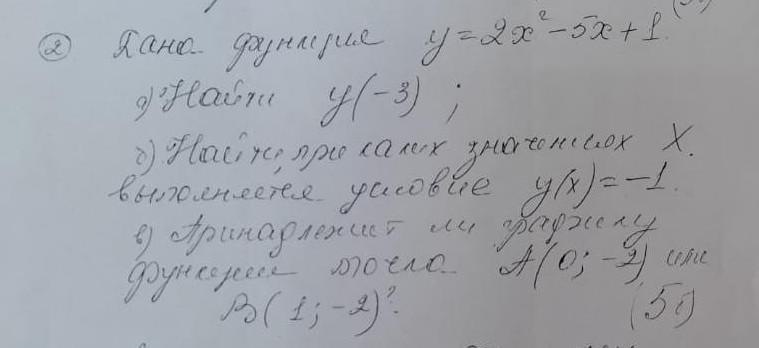 ② Дана функция y=2x²-5x+1.
а) Найти y(-3) ;
б) Найти, при каких значениях X.
выполняется условие y(x)=-1.
в) Принадлежит ли графику
функции точка A(0; -2) или
B(1; -2)? (5б)